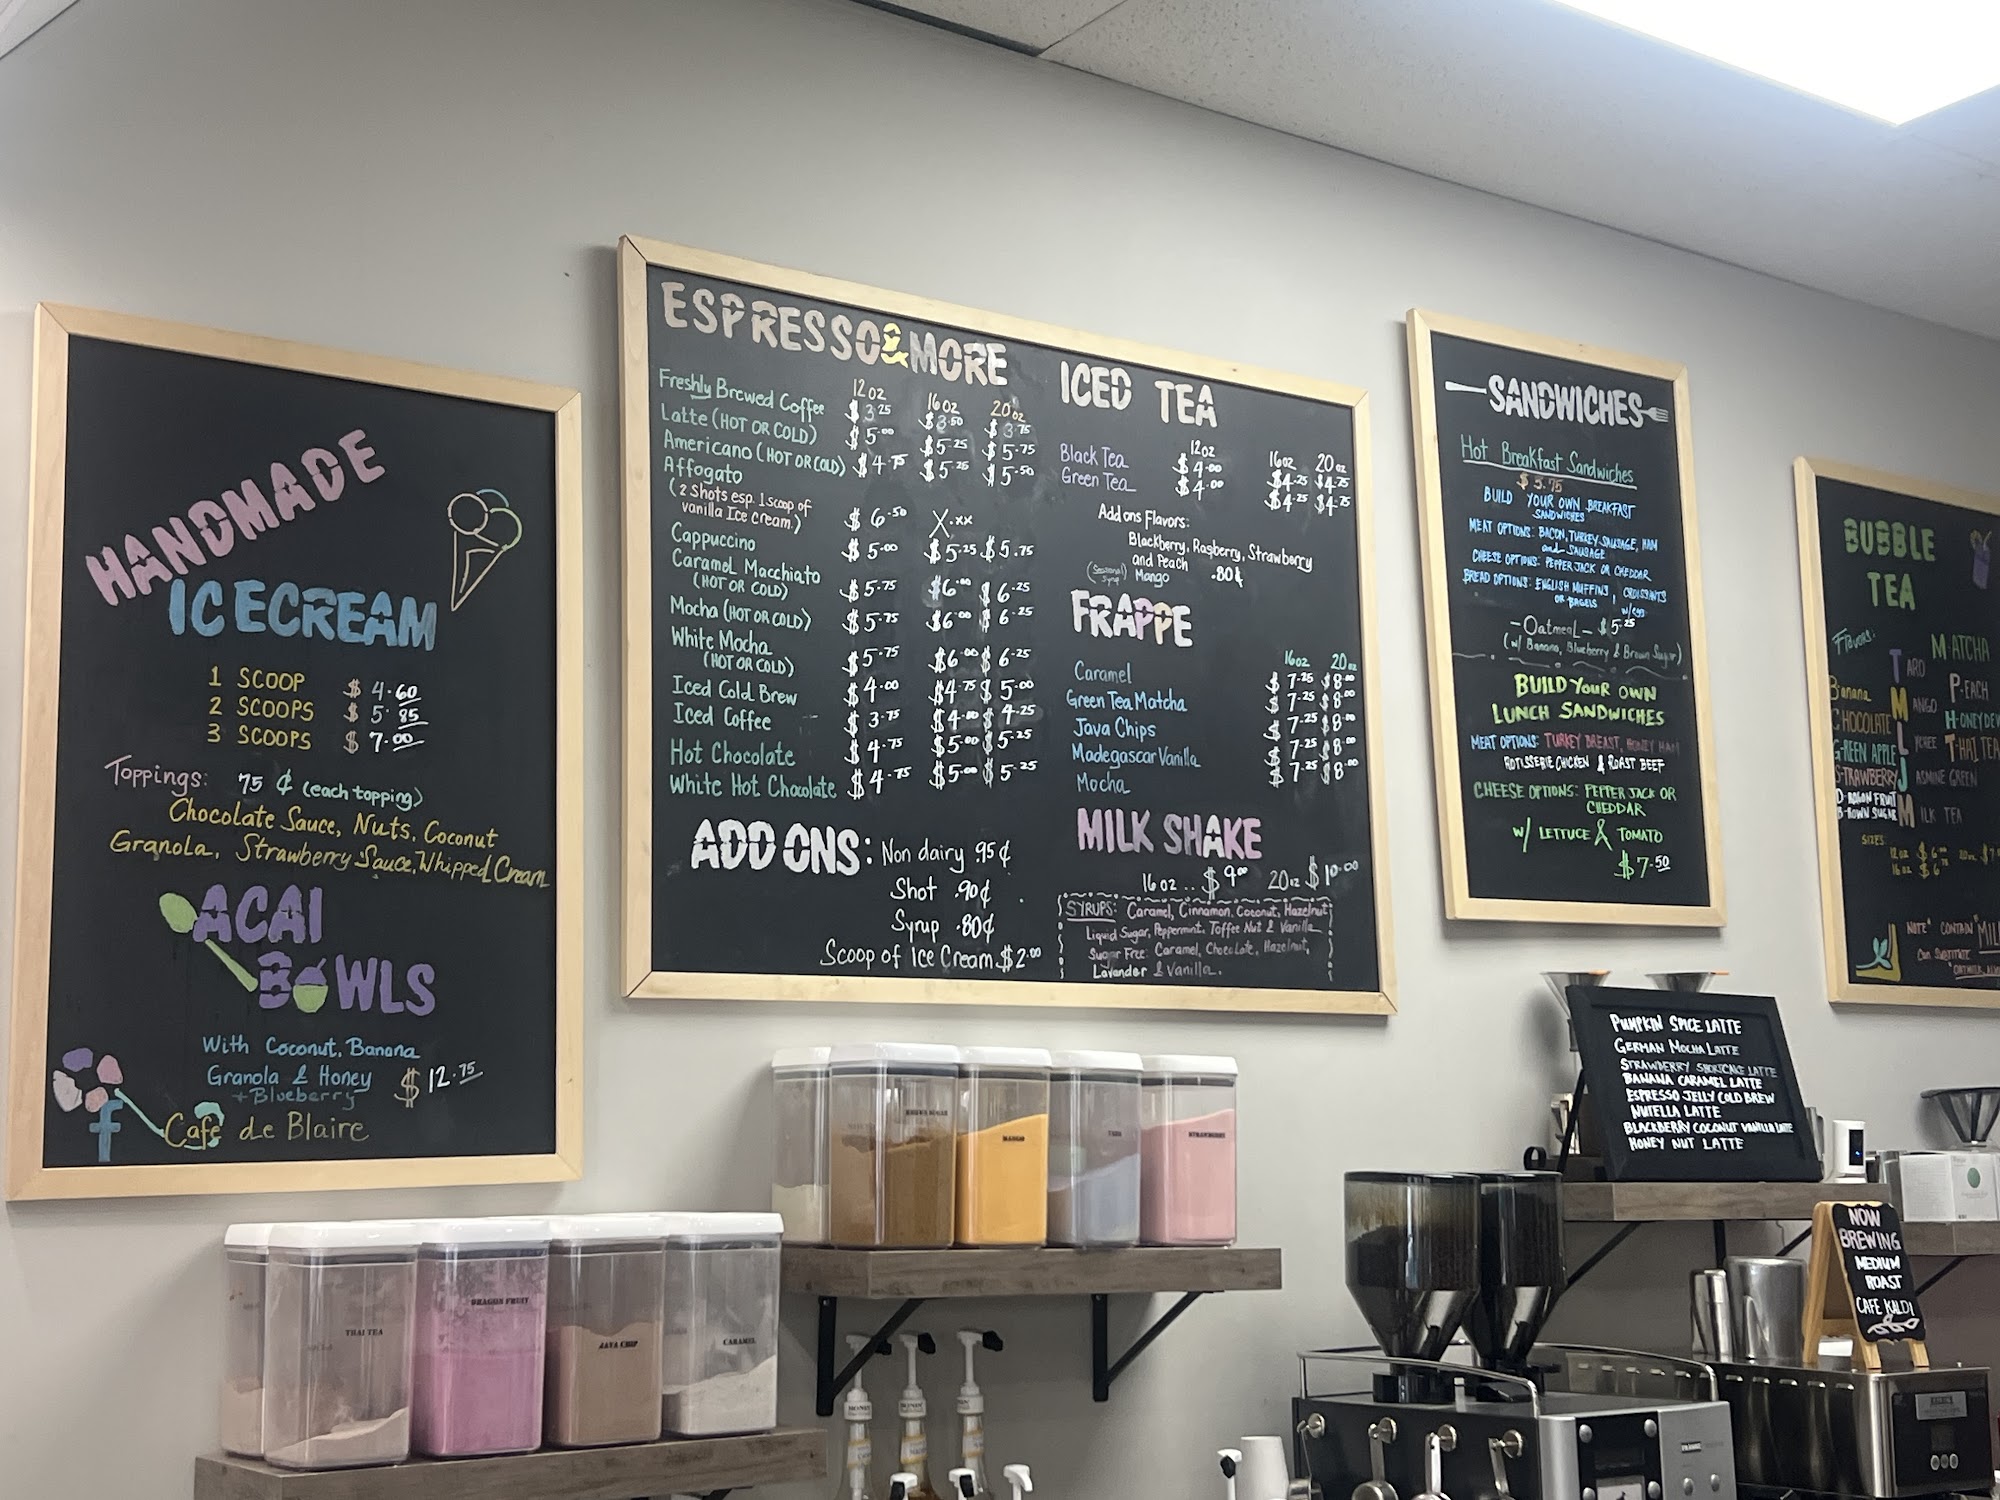 HANDMADE
ICECREAM
1 SCOOP $4.60
2 SCOOPS $5.85
3 SCOOPS $7.00
Toppings: 75¢ (each topping)
Chocolate Sauce, Nuts, Coconut
Granola, Strawberry Sauce, Whipped Cream
ACAI
BOWLS
With Coconut, Banana
Granola & Honey $12.75
+Blueberry
f Cafe de Blaire
ESPRESSO & MORE
12oz 16oz 20oz
Freshly Brewed Coffee $3.25 $3.50 $3.75
Latte (HOT OR COLD) $5.00 $5.25 $5.75
Americano (HOT OR COLD) $4.75 $5.25 $5.50
Affogato
(2 Shots esp. 1 scoop of
vanilla Ice cream.) $6.50 X.xx
Cappuccino $5.00 $5.25 $5.75
Caramel Macchiato
(HOT OR COLD) $5.75 $6.00 $6.25
Mocha (HOT OR COLD) $5.75 $6.00 $6.25
White Mocha
(HOT OR COLD) $5.75 $6.00 $6.25
Iced Cold Brew $4.00 $4.75 $5.00
Iced Coffee $3.75 $4.00 $4.25
Hot Chocolate $4.75 $5.00 $5.25
White Hot Chocolate $4.75 $5.00 $5.25
ADD ONS: Non dairy .95¢
Shot .90¢
Syrup .80¢
Scoop of Ice Cream $2.00
ICED TEA
12oz 16oz 20oz
Black Tea $4.00 $4.25 $4.75
Green Tea $4.00 $4.25 $4.75
Add ons Flavors:
Blackberry, Raspberry, Strawberry
and Peach
(Seasonal Syrup) Mango .80¢
FRAPPE
16oz 20oz
Caramel $7.25 $8.00
Green Tea Matcha $7.25 $8.00
Java Chips $7.25 $8.00
Madegascar Vanilla $7.25 $8.00
Mocha $7.25 $8.00
MILK SHAKE
16oz .. $9.00 20oz $10.00
SYRUPS: Caramel, Cinnamon, Coconut, Hazelnut,
Liquid Sugar, Peppermint, Toffee Nut & Vanilla
Sugar Free: Caramel, Chocolate, Hazelnut,
Lavander & Vanilla.
SANDWICHES
Hot Breakfast Sandwiches
$5.75
BUILD YOUR OWN BREAKFAST
SANDWICHES
MEAT OPTIONS: BACON, TURKEY SAUSAGE, HAM
and SAUSAGE
CHEESE OPTIONS: PEPPER JACK OR CHEDDAR
BREAD OPTIONS: ENGLISH MUFFINS, CROISSANTS
OR BAGELS w/egg
- Oatmeal - $5.25
(w/ Banana, Blueberry & Brown Sugar)
BUILD YOUR OWN
LUNCH SANDWICHES
MEAT OPTIONS: TURKEY BREAST, HONEY HAM
ROTISSERIE CHICKEN & ROAST BEEF
CHEESE OPTIONS: PEPPER JACK OR
CHEDDAR
W/ LETTUCE & TOMATO
$7.50
BUBBLE
TEA
Flavors:
Banana
CHOCOLATE
G-REEN APPLE
S-TRAWBERRY
D-RAGON FRUIT
B-ROWN SUGAR
TARO
MANGO
LYCHEE
JASMINE GREEN
MILK TEA
MATCHA
P-EACH
H-ONEYDEW
T-HAI TEA
SIZES:
12oz $6
16oz $6 20oz $7
NOTE* CONTAIN MIL
Can Substitute
PUMPKIN SPICE LATTE
GERMAN MOCHA LATTE
STRAWBERRY SHORTCAKE LATTE
BANANA CARAMEL LATTE
ESPRESSO JELLY COLD BREW
NUTELLA LATTE
BLACKBERRY COCONUT VANILLA LATTE
HONEY NUT LATTE
BROWN SUGAR
MANGO
TARO
STRAWBERRY
THAI TEA
DRAGON FRUIT
JAVA CHIP
CARAMEL
NOW
BREWING
MEDIUM
ROAST
CAFE KALDI